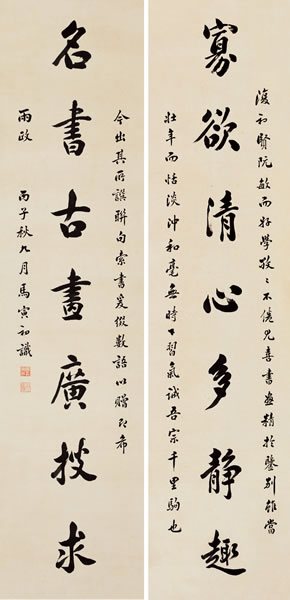 復初賢阮敏而好學孜〻不倦尤喜書畫精於鑒別雖當
寡欲清心多靜趣
壯年而恬淡沖和毫無時下習氣誠吾宗千里駒也
今出其所譔聯句索書爰綴數語以贈即希
名書古畫廣搜求
兩政 丙子秋九月馬寅初識